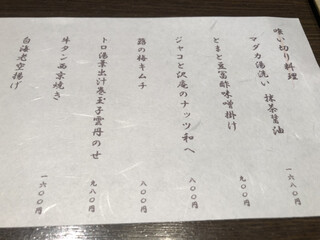 喰い切り料理
マダカ湯洗い 抹茶醤油 一六八〇円
とまと豆冨酢味噌掛け 九八〇円
ジャコと沢庵のナッツ和へ 八〇〇円
蕗の梅キムチ 八〇〇円
トロ湯葉出汁巻玉子雲丹のせ 九八〇円
牛タン西京焼き 九八〇円
白海老空揚げ 一六〇〇円